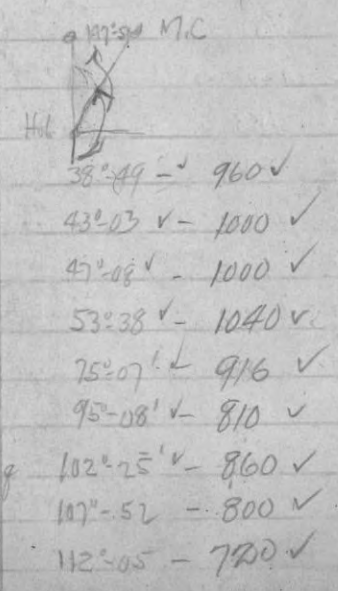 147°-51 M.C
Hub
38°-49 - ✓ 960 ✓
43°-03 ✓ - 1000 ✓
47°-08 ✓ - 1000 ✓
53°-38 ✓ - 1040 ✓
75°-07' ✓ - 916 ✓
95°-08' ✓ - 810 ✓
102°-25' ✓ - 860 ✓
107°-52 - 800 ✓
112°-05 - 720 ✓